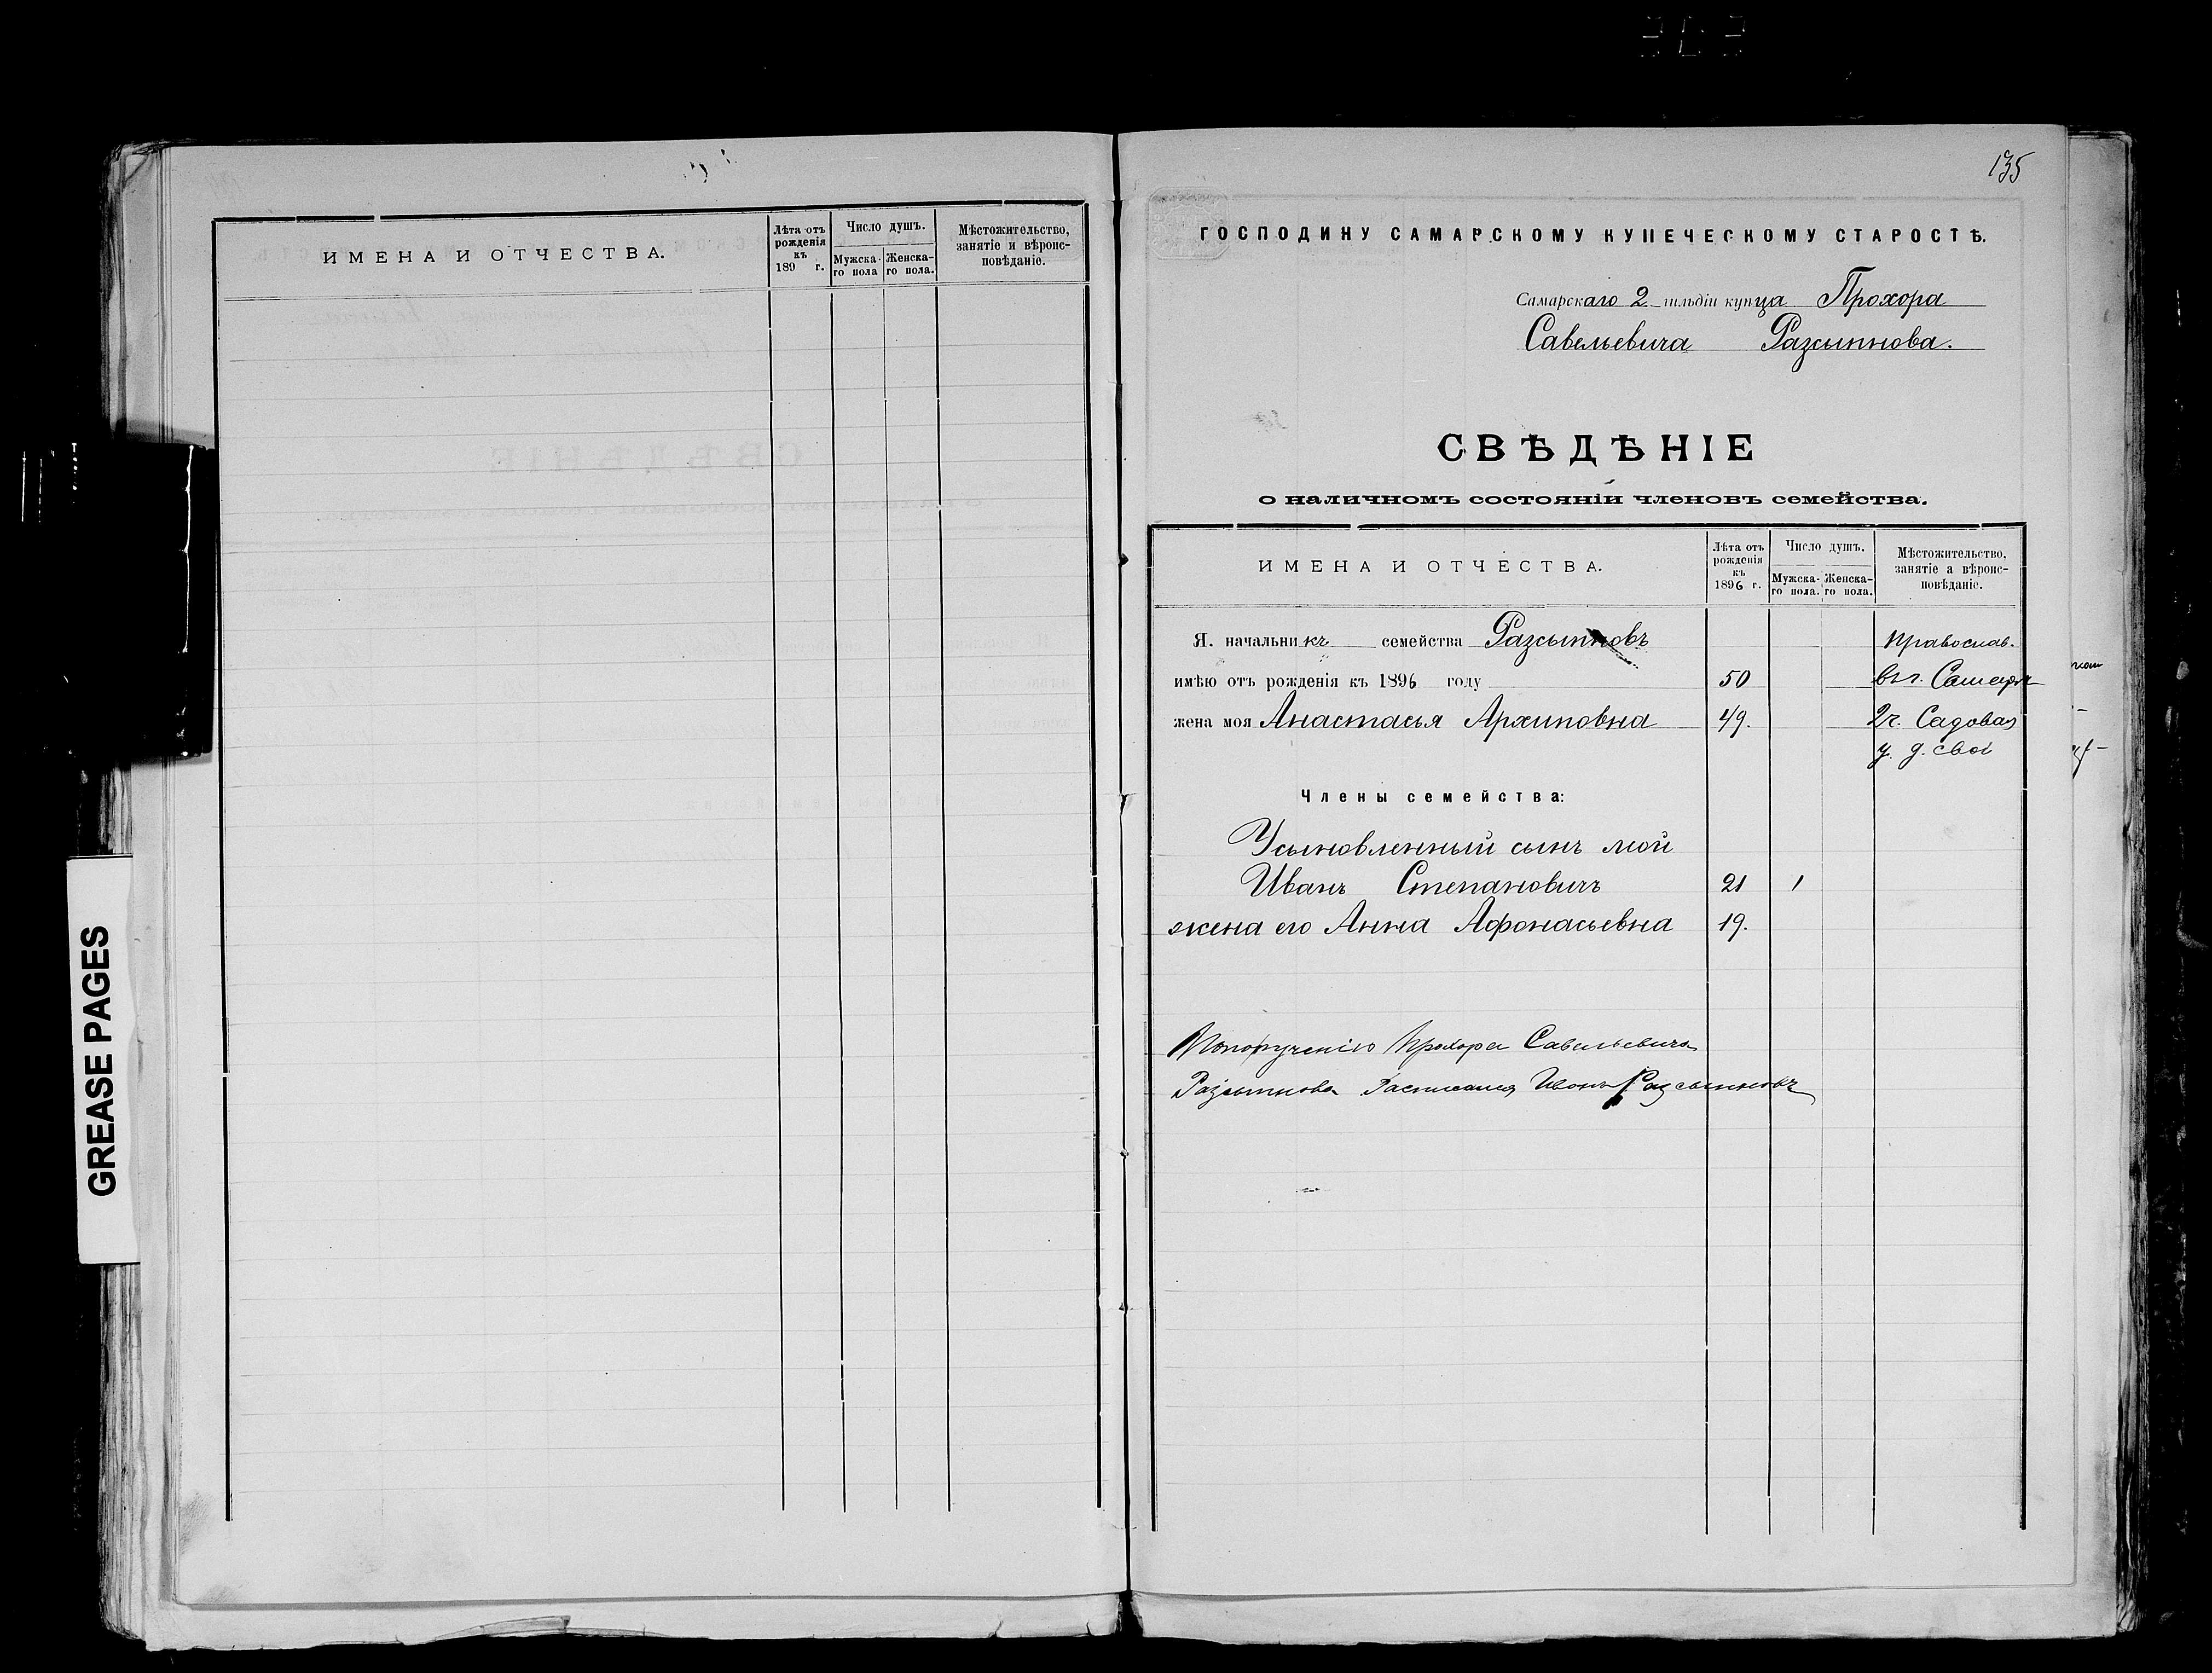 GREASE PAGES
ИМЕНА И ОТЧЕСТВА.
Лѣта отъ рожденія къ 189 г.
Число душъ.
Мужска-го пола
Женска-го пола.
Мѣстожительство, занятіе и вѣроис-повѣданіе.
135
ГОСПОДИНУ САМАРСКОМУ КУПЕЧЕСКОМУ СТАРОСТѢ.
Самарскаго 2 гильдіи купца Прохора
Савельевича Разсыпнова.
СВѢДѢНІЕ
о наличномъ состояніи членовъ семейства.
ИМЕНА И ОТЧЕСТВА.
Лѣта отъ рожденія къ 1896 г.
Число душъ.
Мужска-го пола.
Женска-го пола.
Мѣстожительство, занятіе а вѣроис-повѣданіе.
Я. начальникъ семейства Разсыпновъ Православ.
имѣю отъ рожденія къ 1896 году 50 въ г. Самарѣ
жена моя Анастасья Архиповна 49. 2 ч. Садовая
у. д. свой
Члены семейства:
Усыновленный сынъ мой
Иванъ Степановичъ 21 1
жена его Анна Афонасьевна 19.
Попорученію Прохора Савельевича
Разсыпнова Расписался Иванъ Разсыпновъ